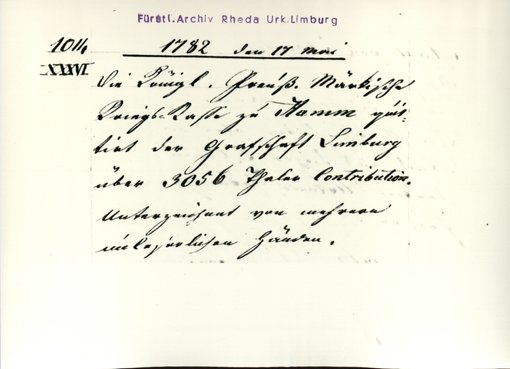 Fürstl.Archiv Rheda Urk.Limburg
1014 1782 den 17 Mai
XXXVI.
Die Königl. Preuß. Märkische
Kriegs-Kasse zu Hamm quit-
tirt der Grafschaft Limburg
über 3056 Thaler Contribution.
Unterzeichnet von mehrern
unleserlichen Händen.